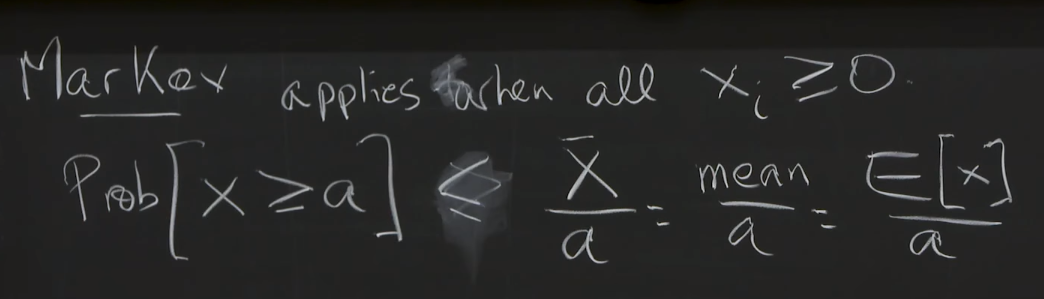 Markov applies when all xᵢ ≥ 0.
Prob[x ≥ a] ≤ X̄/a = mean/a = E[x]/a